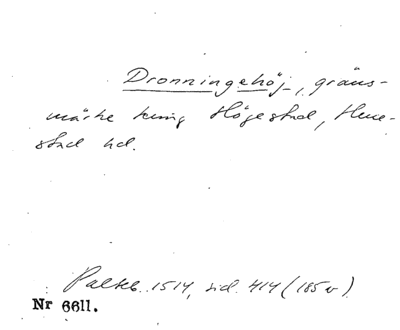 Dronningehöj, gräns-
märke kring Högestad, Herre-
stad hd.
Palteb. 1514, sid. 414 (185v)
Nr 6611.